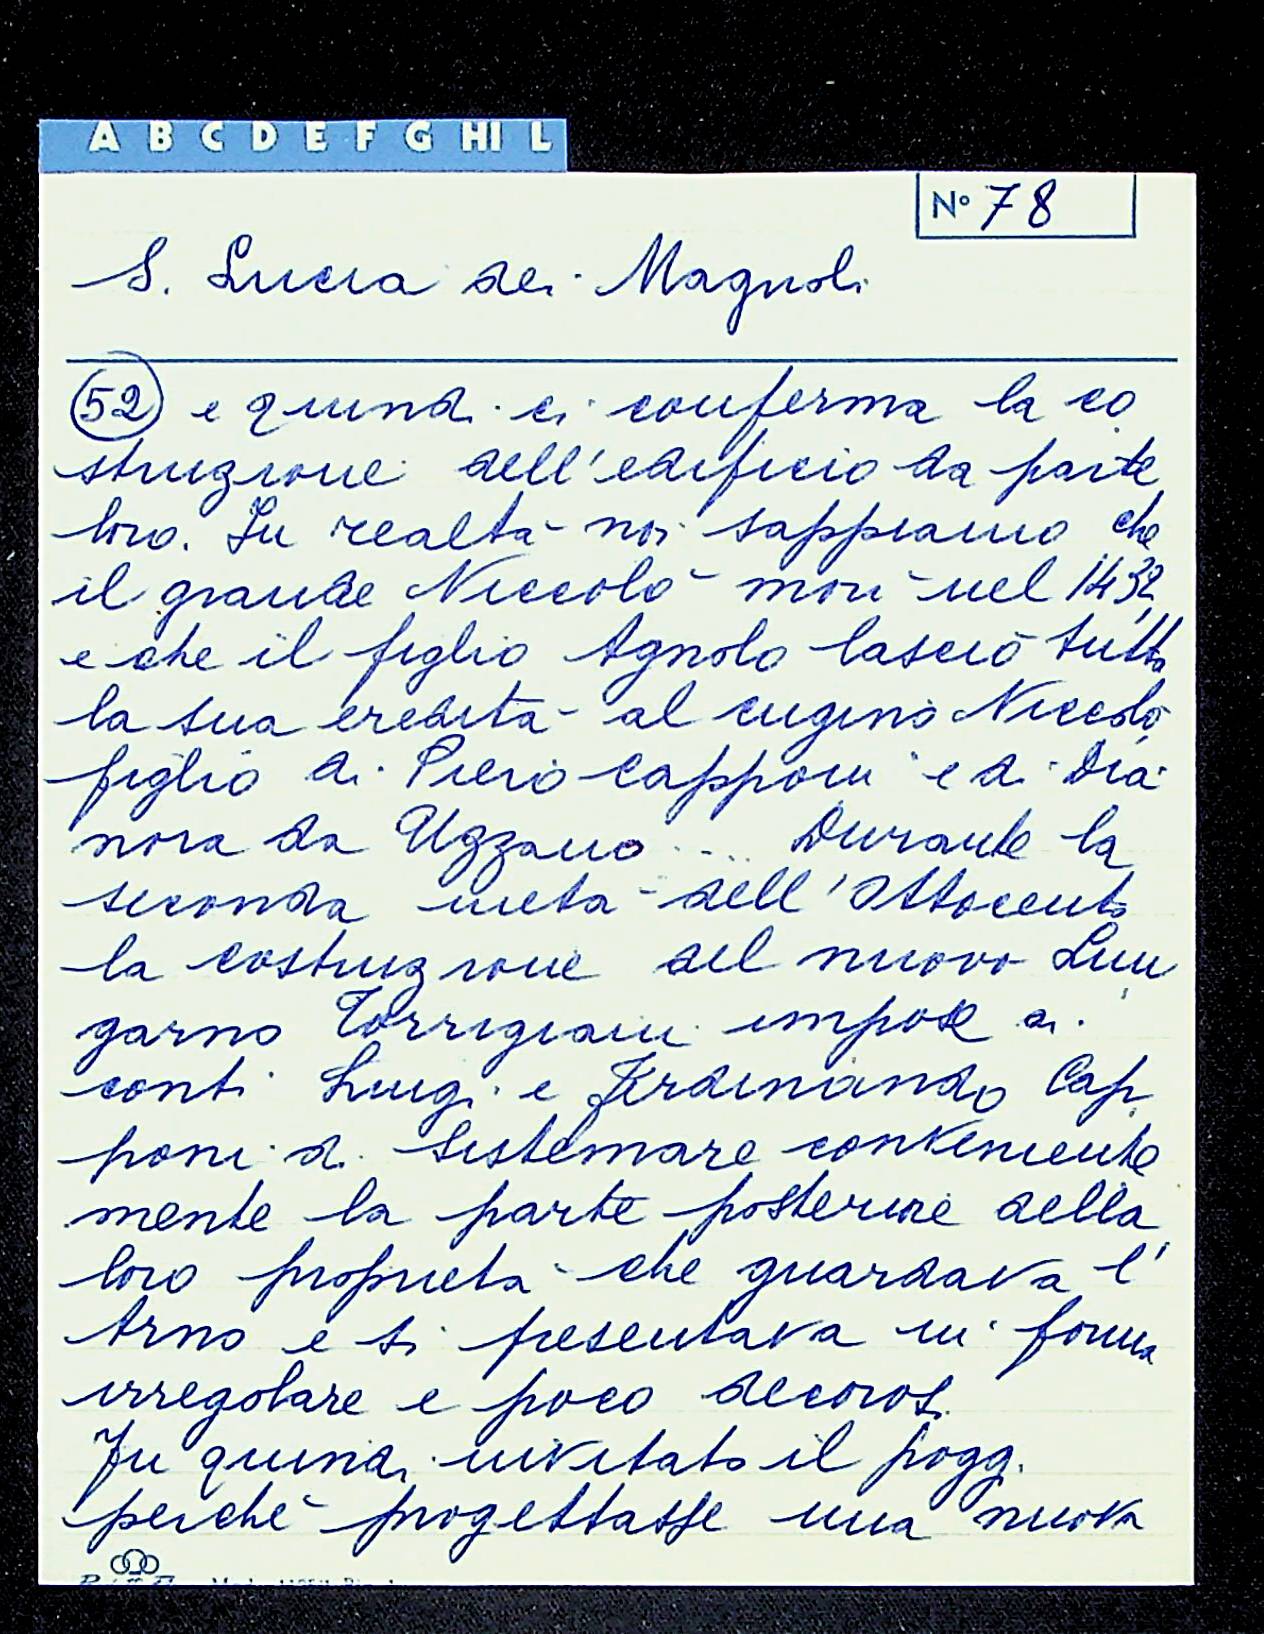 A B C D E F G HI L
N° 78
S. Lucia dei Magnoli
52 e quindi ci conferma la co
struzione dell'edificio da parte
loro. In realtà noi sappiamo che
il grande Niccolò morì nel 1432
e che il figlio Agnolo lasciò tutta
la sua eredità al cugino Niccolò
figlio di Piero Capponi e di Dia
nora da Uzzano .... Durante la
seconda metà dell'Ottocento
la costruzione del nuovo Lun
garno Torrigiani impose ai
conti Luigi e Ferdinando Cap
poni di sistemare conveniente
mente la parte posteriore della
loro proprietà che guardava l'
Arno e si presentava in forma
irregolare e poco decorosa.
Fu quindi invitato il Pogg.
perchè progettasse una nuova